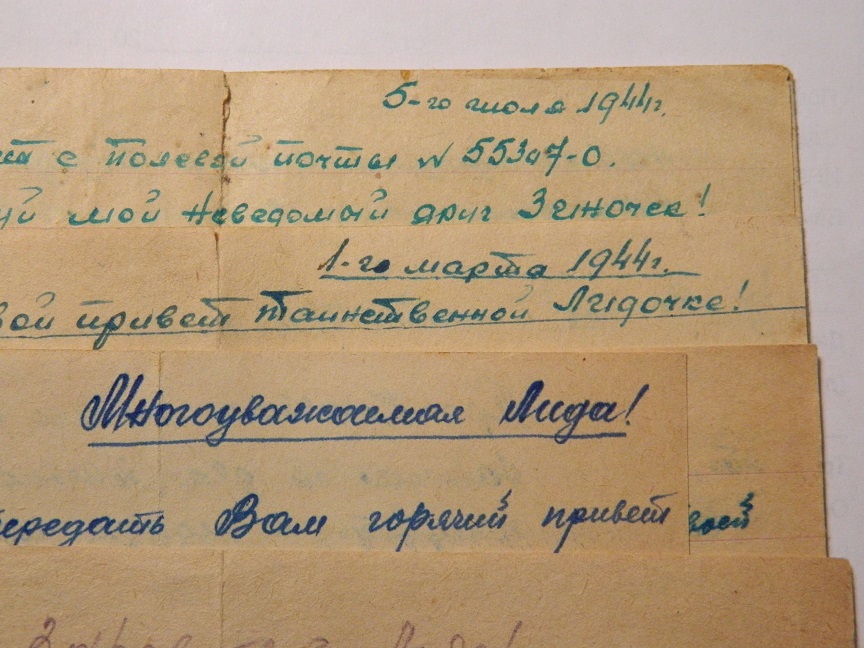 5-го июля 1944г.
с полевой почты № 55347-О.
мой неведомый друг Зиночек!
1-го марта 1944г.
привет таинственной Лидочке!
Многоуважаемая Лида!
передать Вам горячий привет